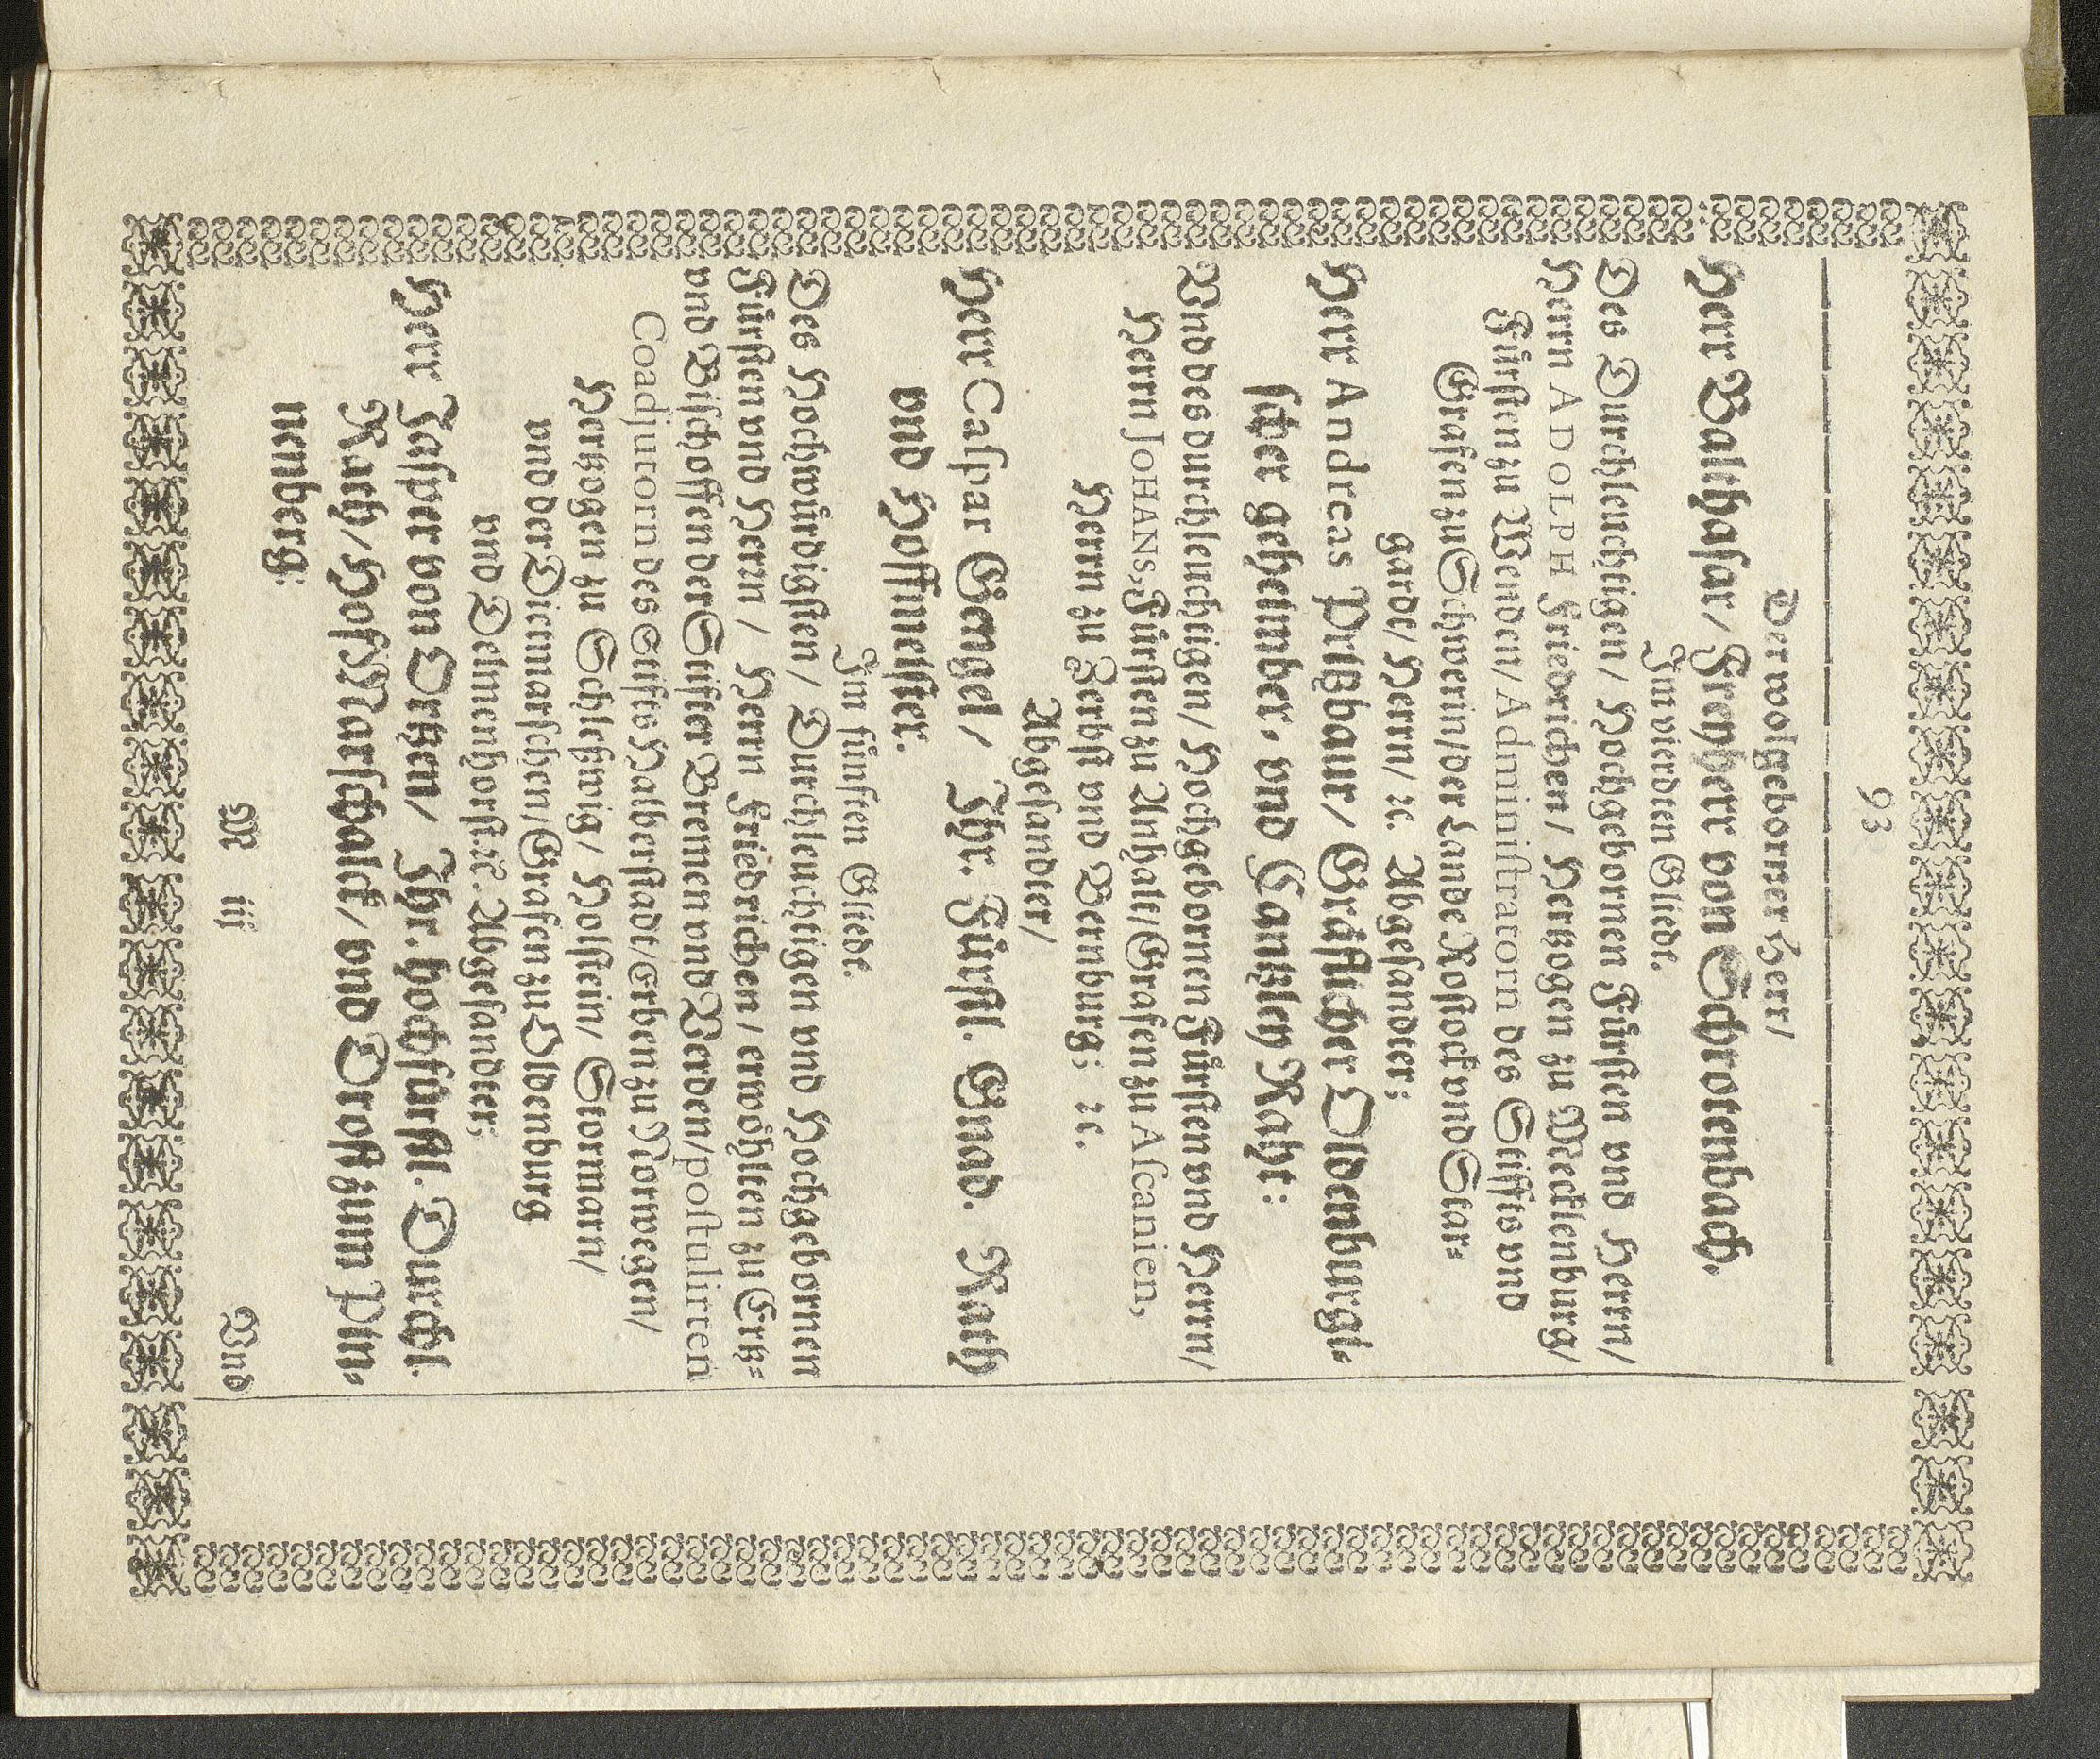 93
Der wolgeborner Herr/
Herr Balthasar/ Freyherr von Schrotenbach.
Im vierdten Gliede.
Des Durchleuchtigen/ Hochgebornen Fürsten vnd Herrn/
Herrn ADOLPH Friedrichen/ Hertzogen zu Mecklenburg/
Fürsten zu Wenden/ Adminiſtratorn des Stiffts vnd
Grafen zu Schwerin/ der Lande Rostock vnd Star-
garde/ Herrn/ ꝛc. Abgesandter;
Herr Andreas Pritzbaur/ Gräflicher Oldenburgi-
scher geheimber- vnd Cantzley Raht:
Vnd des durchleuchtigen/ Hochgebornen Fürsten vnd Herrn/
Herrn JOHANS, Fürsten zu Anhalt/ Grafen zu Aſcanien,
Herrn zu Zerbst vnd Bernburg; ꝛc.
Abgesandter/
Herr Caſpar Gengel/ Ihr. Fürstl. Gnad. Rath
vnd Hoffmeister.
Im fünften Gliede.
Des Hochwürdigsten/ Durchleuchtigen vnd Hochgebornen
Fürsten vnd Herrn/ Herrn Friedrichen/ erwöhlten zu Ertz-
vnd Bischoffen der Stifter Bremen vnd Verden/ poſtulirten
Coadjutorn des Stifts Halberstadt/ Erben zu Norwegen/
Hertzogen zu Schleßwig/ Holstein/ Stormarn/
vnd der Dietmarschen/ Grafen zu Oldenburg
vnd Delmenhorst. ꝛc. Abgesandter;
Herr Casper von Ortzen/ Ihr. hochfürstl. Durchl.
Rath/ Hof Marschalck/ vnd Drost zum Pin-
nenberg:
M iij
Vnd